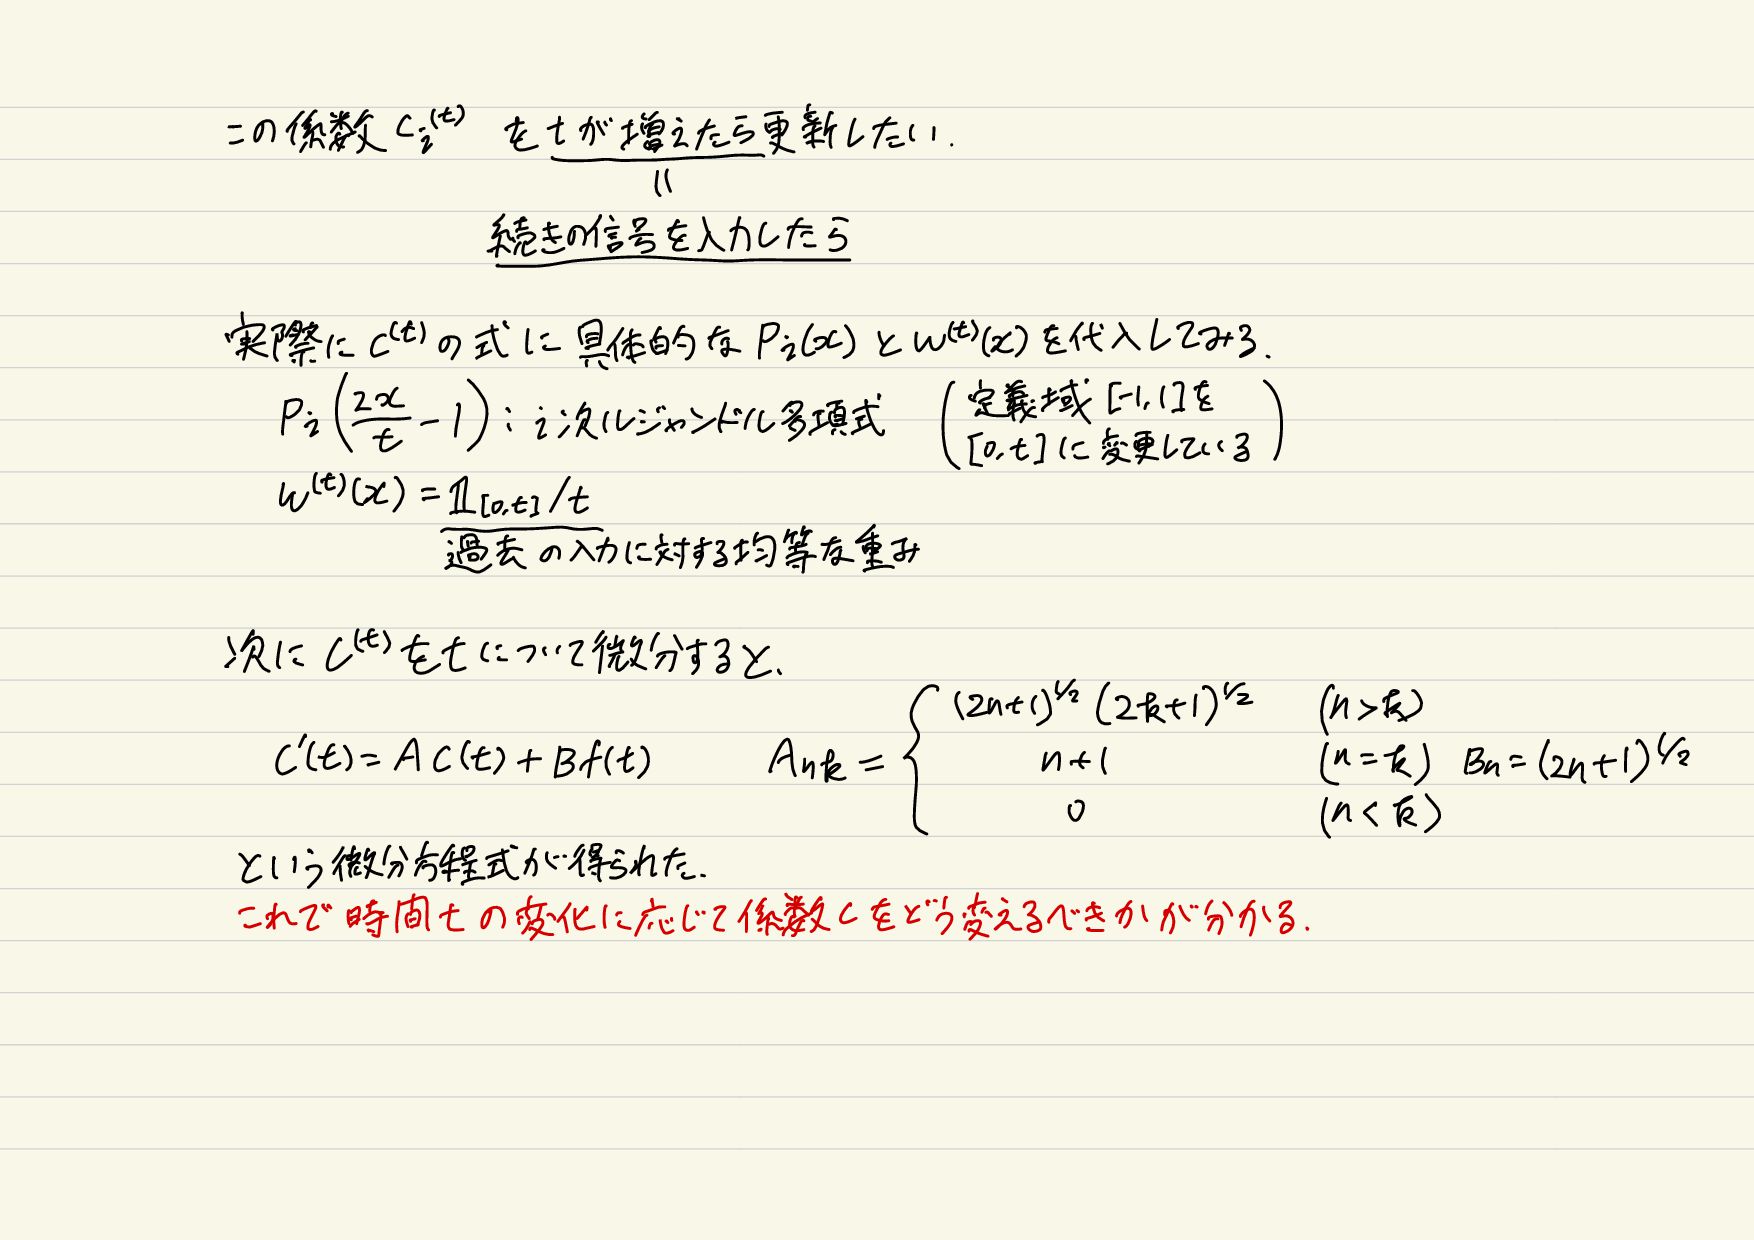 この係数 C_i^(t) をtが増えたら更新したい.
||
続きの信号を入力したら
実際に C^(t) の式に具体的な P_i(x) と w^(t)(x) を代入してみる.
P_i(2x/t - 1) : i次ルジャンドル多項式 (定義域 [-1,1]を [0,t]に変更している)
w^(t)(x) = 𝟙_[0,t] / t
過去の入力に対する均等な重み
次に C^(t) をtについて微分すると、
C'(t) = A C(t) + B f(t) A_nk = { (2n+1)^1/2 (2k+1)^1/2 (n>k)
n+1 (n=k) B_n = (2n+1)^1/2
0 (n<k)
という微分方程式が得られた.
これで時間tの変化に応じて係数cをどう変えるべきかが分かる.